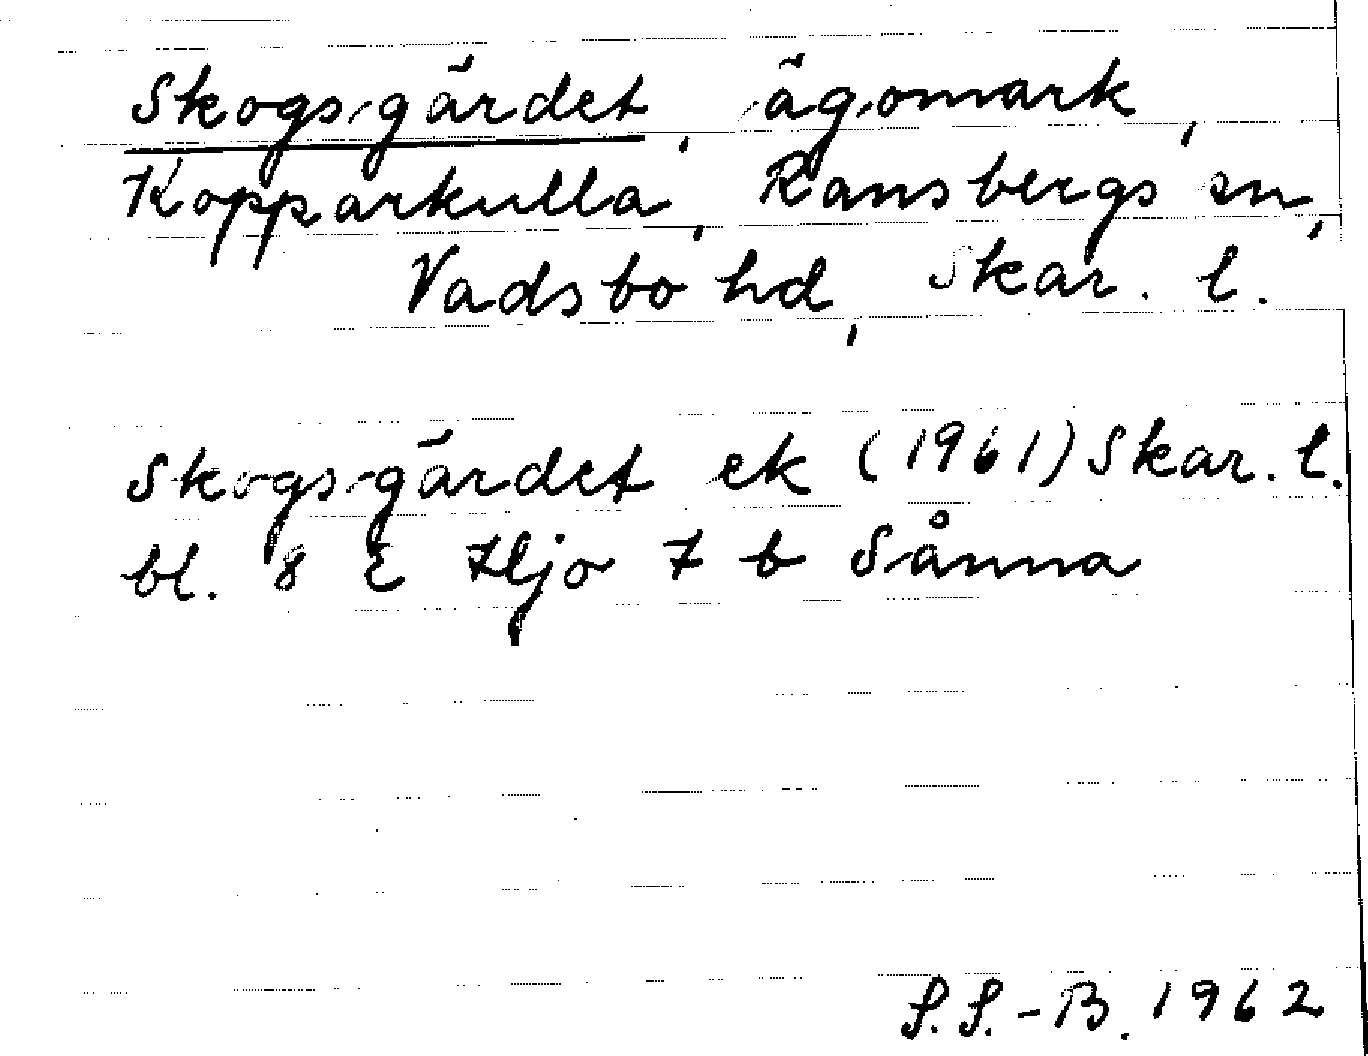 Skogsgärdet, ägomark,
Kopparkulla, Ransbergs sn,
Vadsbo hd, Skar. l.
Skogsgärdet ek (1961) Skar. l.
bl. 8 E Hjo 7 b Sånna
S.S.-B. 1962